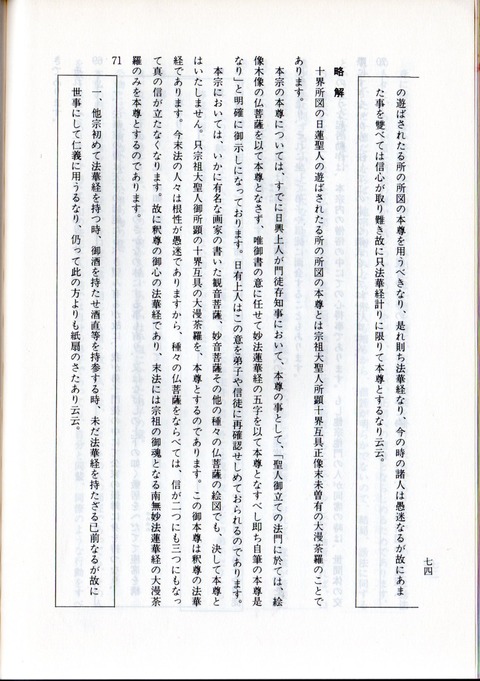 の遊ばされたる所の所図の本尊を用うべきなり、是れ則ち法華経なり、今の時の諸人は愚迷なるが故にあま
た事を雙べては信心が取り難き故に只法華経計りに限りて本尊とするなり云云。
略解
十界所図の日蓮聖人の遊ばされたる所の所図の本尊とは宗祖大聖人所顕十界互具正像末未曽有の大漫荼羅のことで
あります。
本宗の本尊については、すでに日興上人が門徒存知事において、本尊の事として、「聖人御立ての法門に於ては、絵
像木像の仏菩薩を以て本尊となさず、唯御書の意に任せて妙法蓮華経の五字を以て本尊となすべし即ち自筆の本尊是
なり」と明確に御示しになっております。日有上人はこの意を弟子や信徒に再確認せしめておられるのであります。
本宗においては、いかに有名な画家の書いた観音菩薩、妙音菩薩その他の種々の仏菩薩の絵図でも、決して本尊と
はいたしません。只宗祖大聖人御所顕の十界互具の大漫荼羅を、本尊とするのであります。この御本尊は釈尊の法華
経であります。今末法の人々は根性が愚迷でありますから、種々の仏菩薩をならべては、信が二つにも三つにもなっ
て真の信が立たなくなります。故に釈尊の御心の法華経であり、末法には宗祖の御魂となる南無妙法蓮華経の大漫荼
羅のみを本尊とするのであります。
71
一、他宗初めて法華経を持つ時、御酒を持たせ酒直等を持参する時、未だ法華経を持たざる已前なるが故に
世事にして仁義に用うるなり、仍って此の方よりも紙扇のさたあり云云。
七四